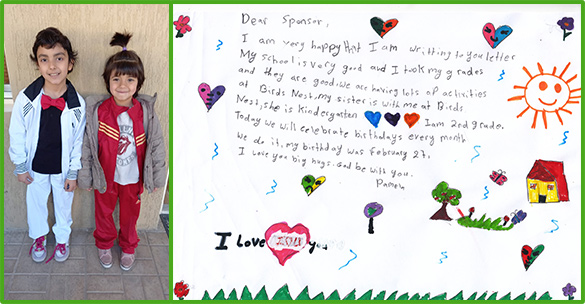 Dear Sponsor,
I am very happy that I am writting to you letter
My school is very good and I took my grades
and they are good, we are having lots of activities
at Birds Nest, my sister is with me at Birds
Nest, she is Kindergarten I am 2ed grade.
Today we will celebrate birthdays every month
we do it, my birthday was February 27.
I love you big hugs. God be with you.
Pamela
I Love YOU you